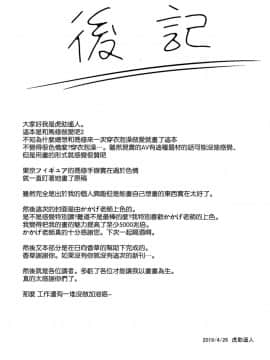 後記
大家好我是虎助遙人
這本是和馬修做愛吧2
不知為什麼總想和馬修來一次穿衣泡澡做愛就畫了這本
不覺得很色情麼?穿衣泡澡…。雖然現實的AV有這種題材的話可能沒啥感覺,
但是用畫的形式就感覺很贊吧
東京フィギュア的馬修手辦實在過於色情
就一直盯著她畫了原稿
雖然完全是出於我的個人興趣但是能畫自己想畫的東西實在太好了。
然後這次的封面是由かかげ老師上色的。
是不是感覺特別讚?難道不是最棒的麼?我特別喜歡かかげ老師的上色。
我覺得把我的畫的魅力提高了至少5000兆倍。
かかげ老師真的十分感謝您。下次一起喝酒啊。
然後又本部分是在日向香草的幫助下完成的。
香草謝謝你。如果沒有你就沒有這次的新刊…。
然後就是各位讀者。多虧了各位才能讓我以畫畫為生。
真的太感謝你們了。
那麼 工作還有一堆沒做加油癌~
2019/4/26 虎助遙人